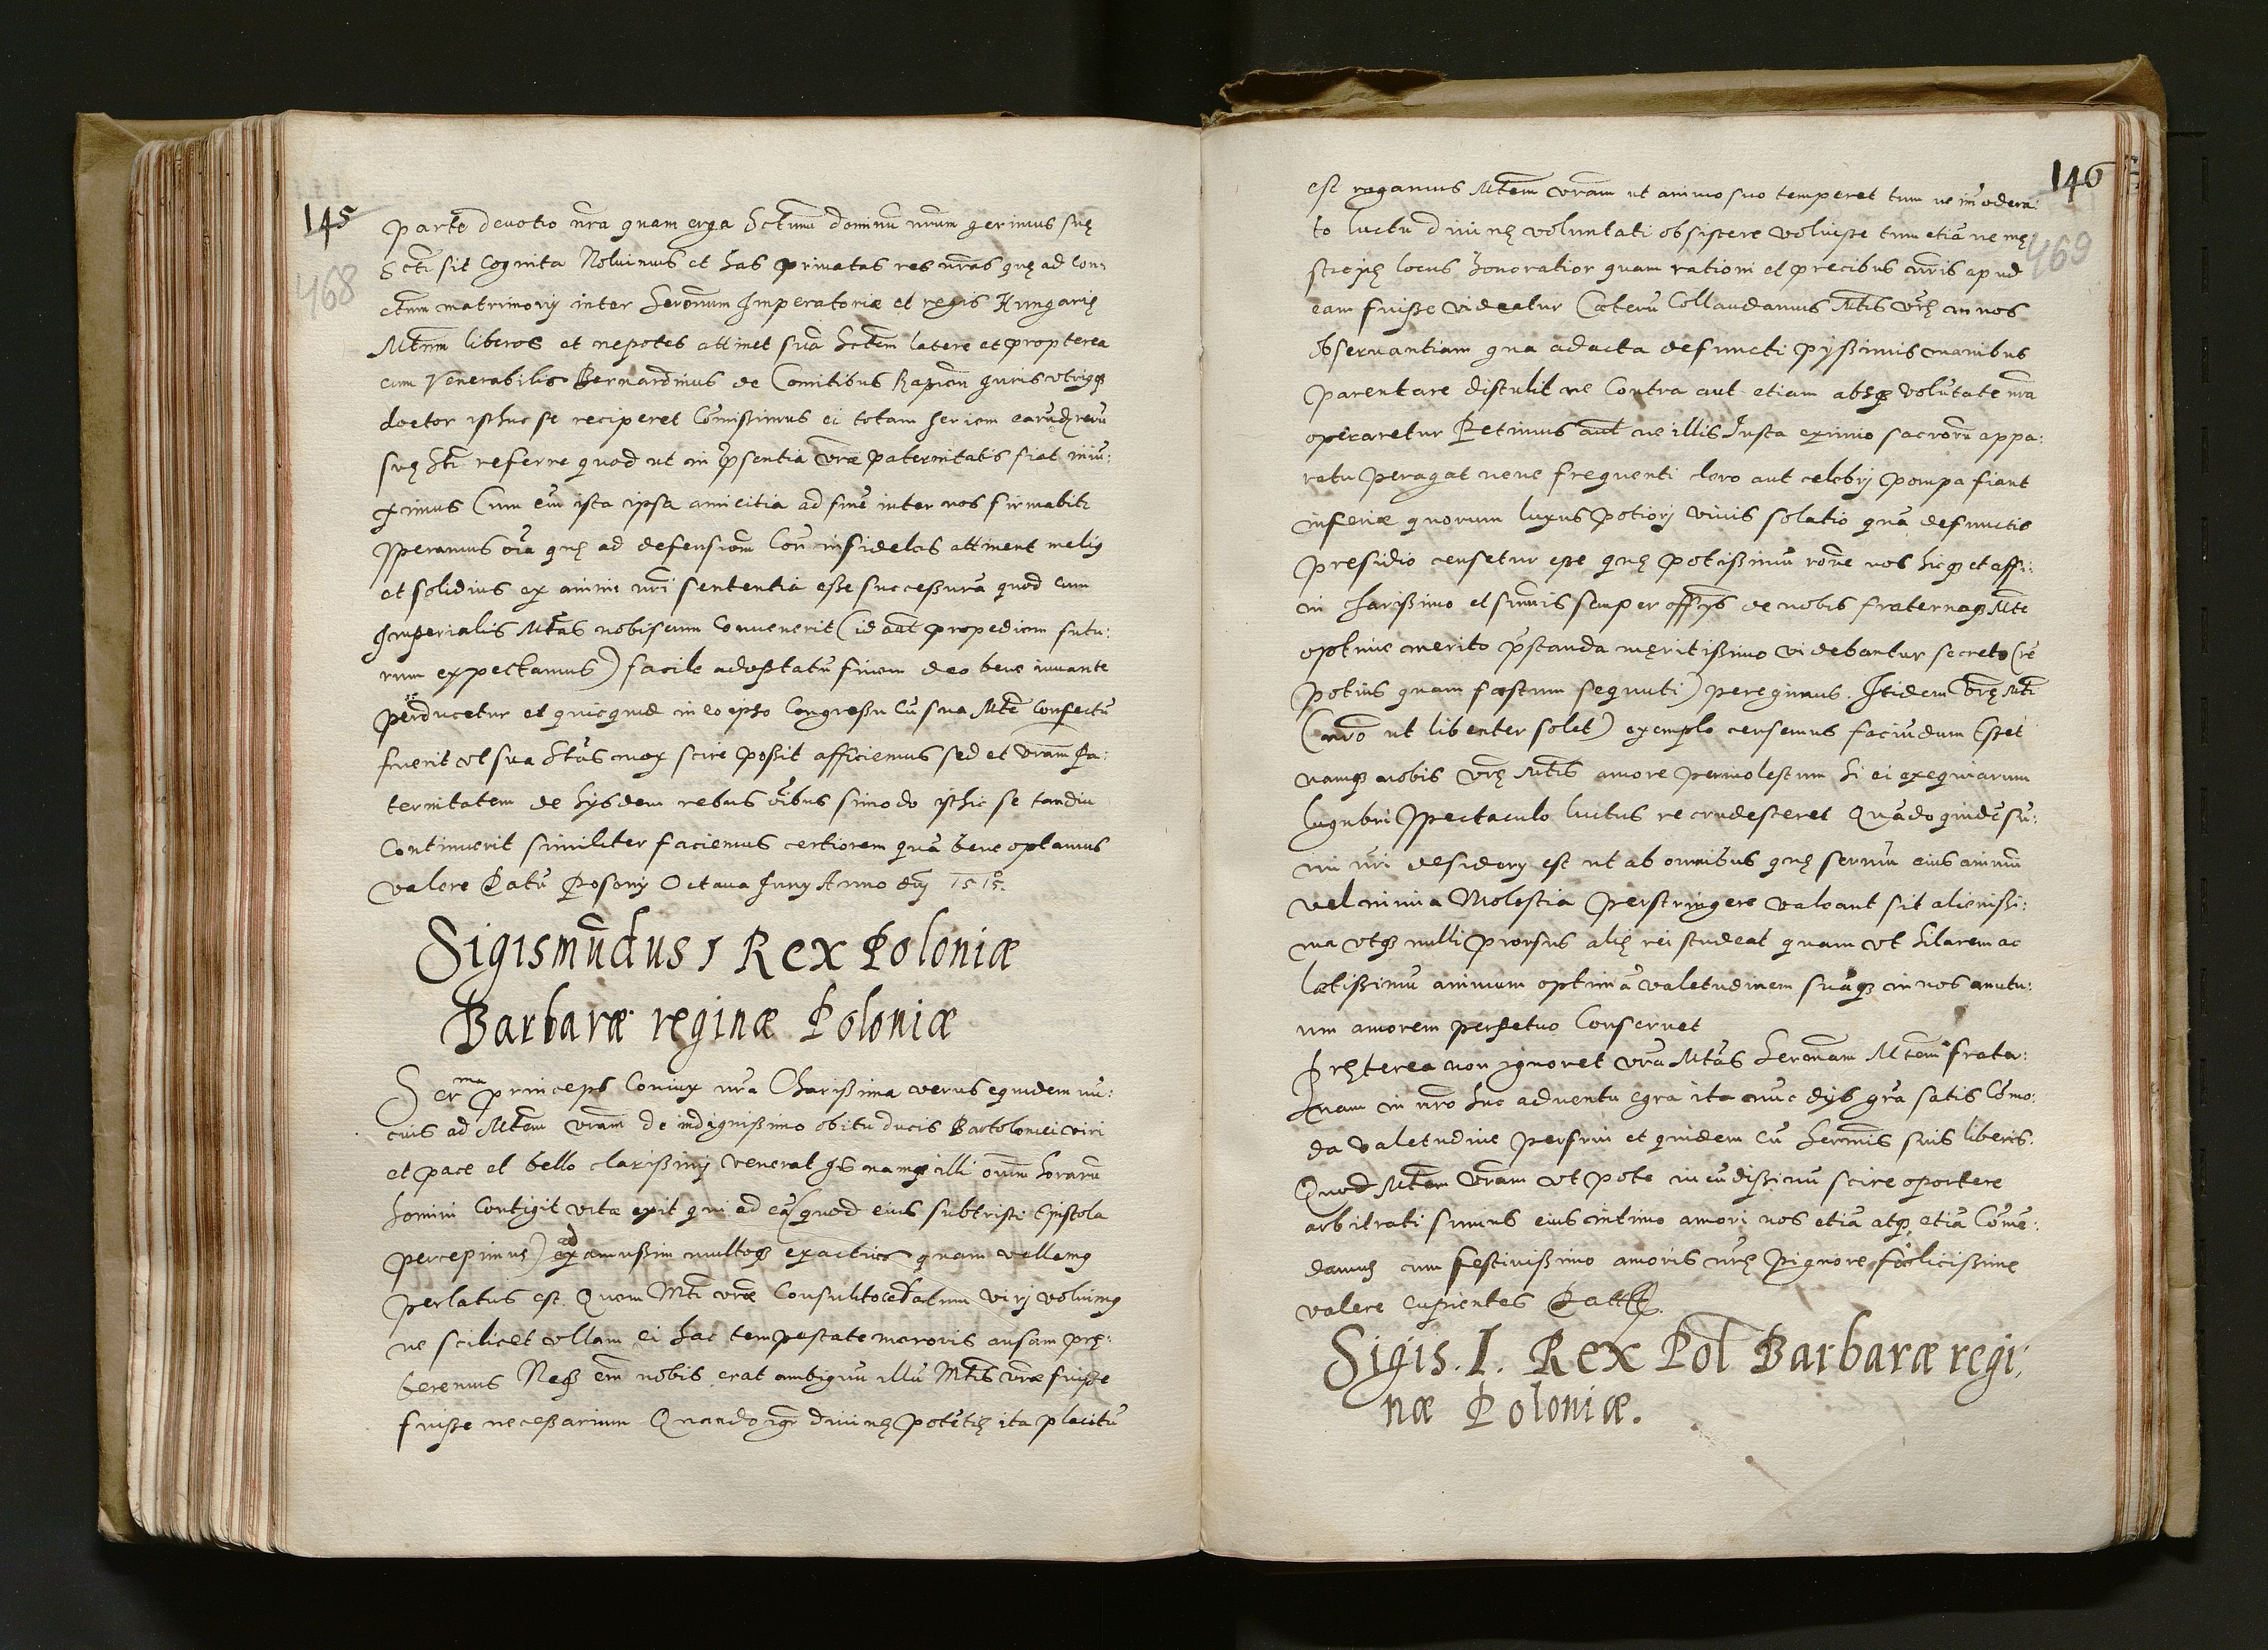 145
468
parte deuotio nrā quam erga Sctmū dominū nrūm gerimus suę
Scti sit cognita Noluimus et has priuatas res nrās quę ad con:
ctum matrimonij inter Serenmum Imperatoriæ et regis Hungarię
Mtum liberos et nepotes attinet suā Sctem latere et propterea
cum Venerabilis Bernardinus de Comitibus iuris vtriusq
doctor isthuc se reciperet Comissimus ei totam seriem earūdē rerū
suę Scti referre quod ut in p̄sentia vrāe paternitatis fiat iniū:
ximus Cum eīn ista ipsa amicitia ad finē inter nos firmabit
speramus oīa quę ad defensiom Con infideles attinent melius
et solidius ex animi nrī sententia esse successura quod cum
Imperialis Mtas nobiscum conuenerit (id aūt propediem futu:
rum expectamus) facile ad optatū finem deo bene iuuante
perducetur et quicquid in eo ipso Congressu cū sua Mte confectū
fuerit vt sua Stas mox scire possit afficiemus sed et vrām Pa:
ternitatem de hijsdem rebus oībus simodo isthic se tandiu
Continuerit similiter faciemus certiorem quā bene optamus
valere Datū Posonij Octaua Iunij Anno dnj 1515.
Sigismūdus 1 Rex Poloniæ
Barbaræ reginæ Poloniæ
Serma princeps Coniux nrā Charissima verus equidem nū:
cius ad Mtem vrām de indignissimo obitu ducis Bartolomei viri
et pace et bello clarissimj venerat Is namq illi oīum horarū
homini Contigit vitæ exit qui ad eā (quod eius subtristi Epistola
percepimus) ad examussim multoq exactius quam vellemus
perlatus est. Quem Mti vrāe Consulto cedatum viri voluimus
ne scilicet vllam ei hac tempestate meroris ansam prę:
beremus Neq em̄ nobis erat ambiguū illū Mtis vrāe fuisse
fuisse necessarium Quando igr diuinę potētię ita placitū
146
469
est rogamus Mtem vrām ut animo suo temperet tum ne imodera:
to luctu diuinę voluntati obsistere voluisse tum etiā ne mę
sticię locus honoratior quam rationi et precibus nrīs apud
eam fuisse videatur Cæterū Collaudamus Mtis vrę in nos
obseruantiam qua adacta defuncti pijssimis manibus
parentare distulit ne Contra aut etiam absq volūtate nrā
operaretur Petimus aūt ne illis Iusta eximio sacrorū appa:
ratu peragat neue frequenti choro aut celebrj pompa fiant
inferiæ quorum luxus potiorj viuis solatio quā defunctis
presidio censetur esse quę potissimū roñe nos hicq et affi:
ni charissimo et sumis semper officijs de nobis fraternaq Mte
optime merito p̄standa męritissimo videbantur secreto (rē
potius quam fastum sequuti) peregimus. Itidem vrę Mti
(nrō ut libenter solet) exemplo censemus faciundum Esset
namq nobis vrę Mtis amore permolestum si ei exequiarum
lugubri spectaculo luctus recrudesceret Quādoquidē sū:
mi nrī desiderij est ut ab omnibus quę sernm eius animū
vel minima Molestia perstringere valeant sit alienissi:
ma vtq nulli prorsus alię rei studeat quam vt hilarem ac
lætissimū animum optimā valetudinem suāq in nos mutu:
um amorem perpetuo Conseruet
Pręterea non ignoret vrā Mtas Serenmam Mtem frater:
nam in nrō huc aduentu egra ita nūc dijs grā satis Cōmo:
da valetudine perfrui et quidem cū sermīs suis liberis.
Quod Mtem vrām vt pote iucūdissimū scire oportere
arbitrati sumus eius intimo amori nos etiā atq etiā Cōmē:
damus cum festiuissimo amoris nrę pignore fœlicissimę
valere cupientes Dattę.
Sigis. I. Rex Pol Barbaræ regi:
næ Poloniæ.